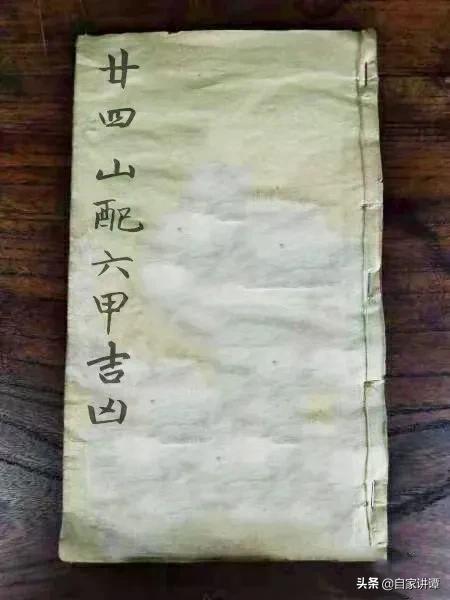 廿四山配六甲吉凶
头条 @自家讲谭